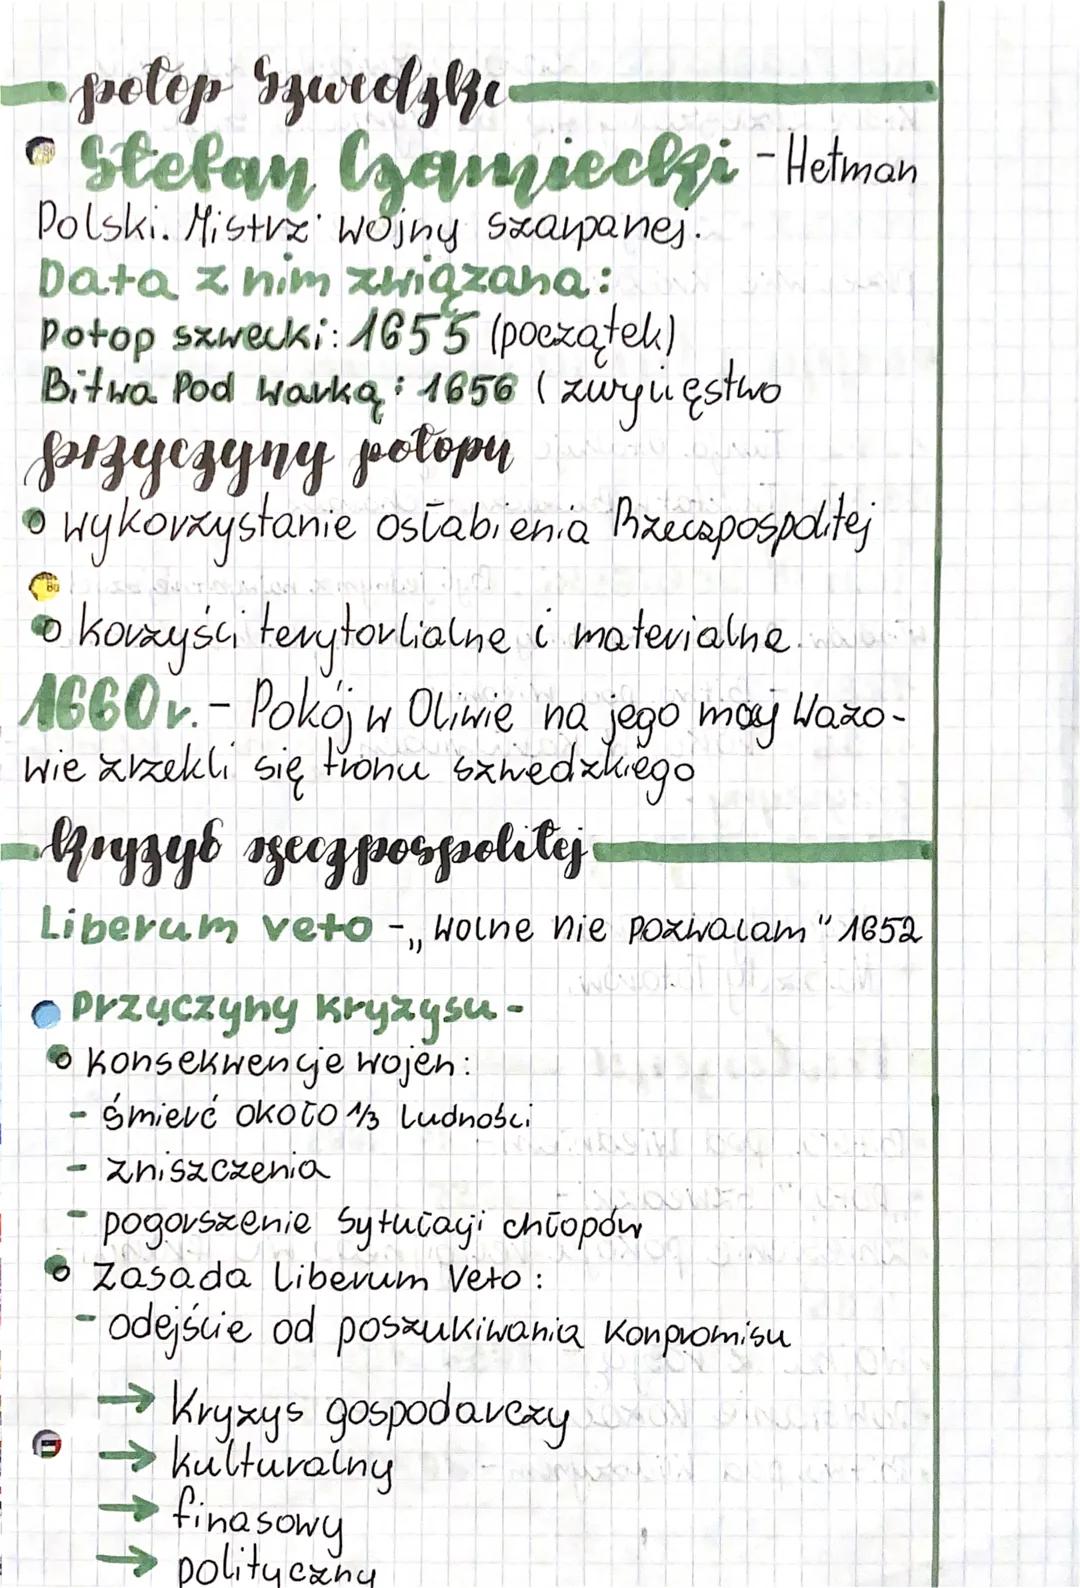 potop Szwedzki
Stefan Czarniecki - Hetman
Polski. Mistrz wojny szarpanej.
Data z nim związana:
Potop szwecki: 1655 (początek)
Bitwa Pod Warką: 1656 (zwycięstwo
przyczyny potopu
o wykorzystanie osłabienia Rzeczpospolitej
o korzyści terytorlialne i materialne.
1660r. - Pokój w Oliwie na jego mocy Wazo-
wie zrzekli się tronu szwedzkiego
Kryzys rzeczpospolitej
Liberum veto - „Wolne nie pozwalam" 1652
Przyczyny kryzysu -
o konsekwencje wojen:
- śmierć około 1/3 ludności
- zniszczenia
- pogorszenie sytułacji chłopów
o Zasada liberum Veto:
- odejście od poszukiwania konpromisu
→ Kryzys gospodarczy
→ kulturalny
→ finasowy
→ polityczny